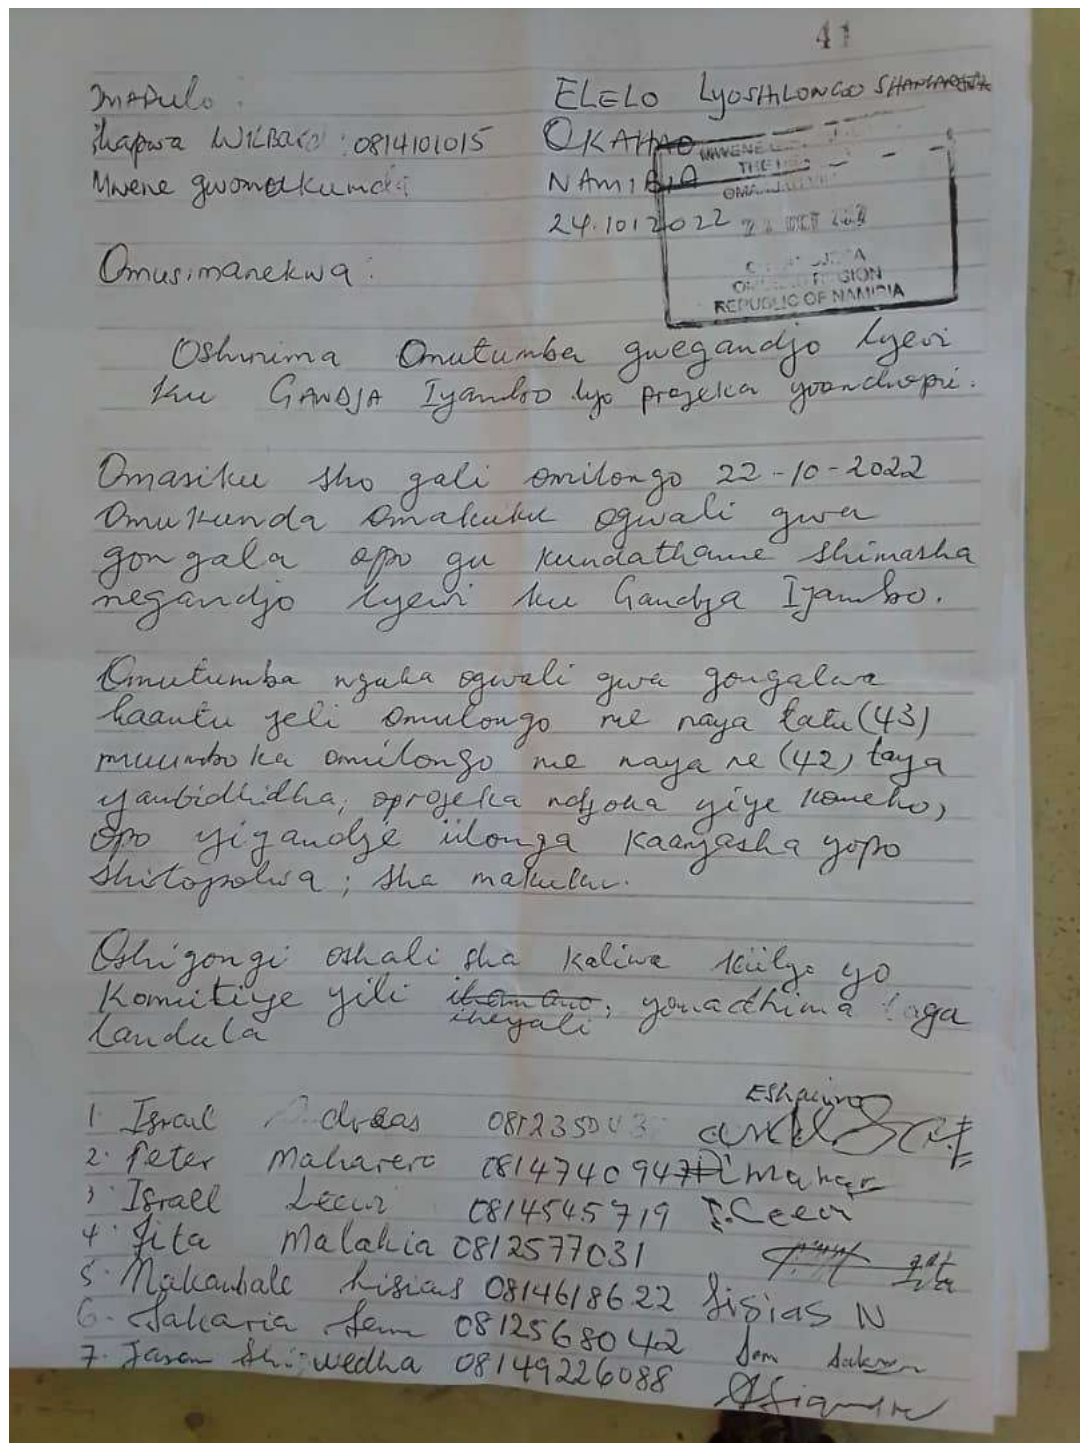 41
ELELO LYOSHILONGO
Shapwa 0814101015 OKAHAO
Mwene gwomukunda NAMIBIA
24.10.2022
OCT
REGION
REPUBLIC OF NAMIBIA
Omusimanekwa:
Oshinima Omutumba gwegandjo lyevi
Ku GANDJA Iyambo lyo projeka
Omasiku sho gali omilongo 22-10-2022
Omukunda Omakuku ogwali gwa
gongala opo gu kundathane shimasha
negandjo lyevi ku Gandja Iyambo.
Omutumba nguka ogwali gwa gongalwa
kaantu yeli omulongo ne naya tatu (43)
omilongo ne naya ne (42) taya
yambidhidha, oprojeka ndjoka yiye komeho,
opo yigandje iilonga kaanyasha yopo
shitopolwa; sha makuku.
Oshigongi oshali sha kaliwa kiilyo yo
Komitiye yili iheyali, yomadhina taga
landula
1. Israel
2. Peter Maharero 0814740947
3. Israel 0814545719
4. Jita Malakia 0812577031
5. Lisias 0814618622 Lisias N
6. Sakaria Sem 0812568042 Sem
7. Jason 08149226088